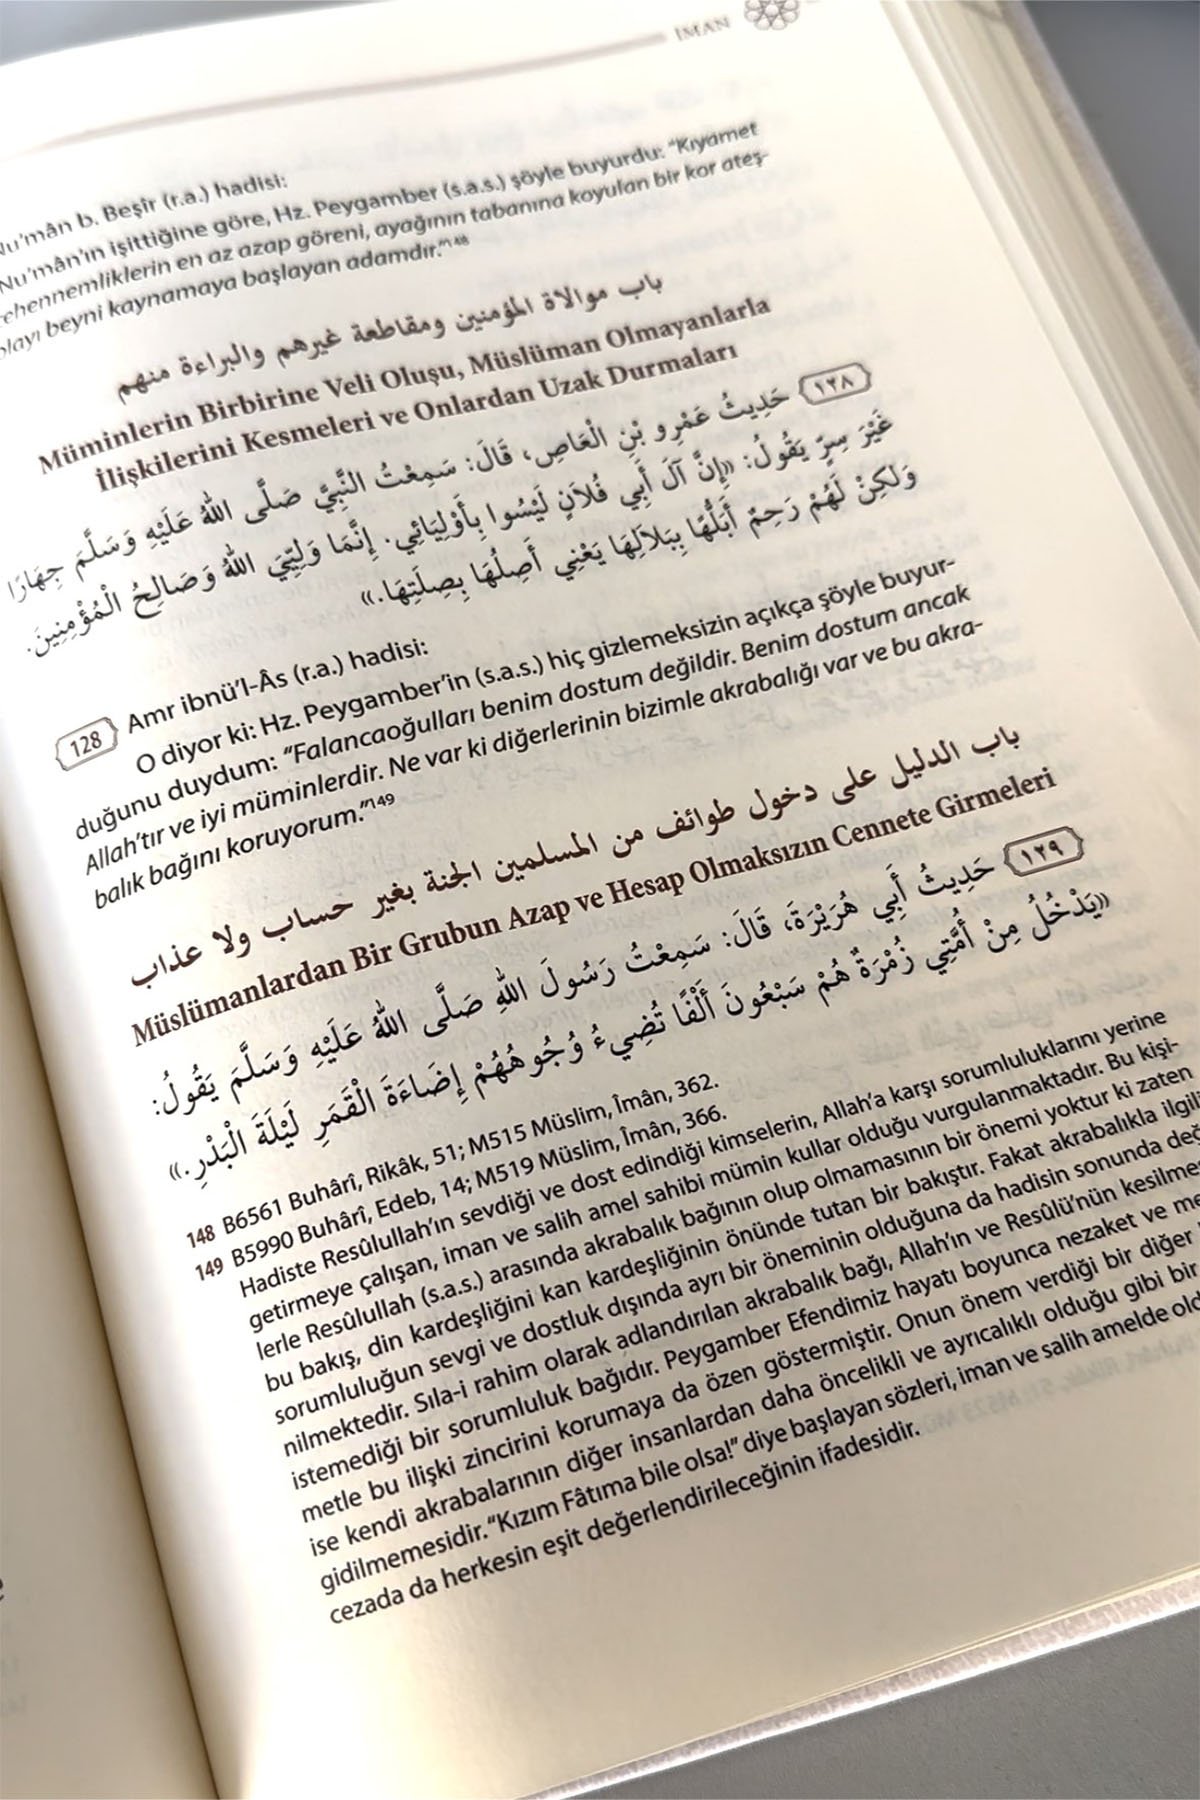 İMAN
Nu'mân b. Beşîr (r.a.) hadisi:
Nu'mân'ın işittiğine göre, Hz. Peygamber (s.a.s.) şöyle buyurdu: "Kıyamet
cehennemliklerin en az azap göreni, ayağının tabanına koyulan bir kor ateş-
dolayı beyni kaynamaya başlayan adamdır."148
باب موالاة المؤمنين ومقاطعة غيرهم والبراءة منهم
Müminlerin Birbirine Veli Oluşu, Müslüman Olmayanlarla
İlişkilerini Kesmeleri ve Onlardan Uzak Durmaları
١٢٨ حَدِيثُ عَمْرِو بْنِ الْعَاصِ، قَالَ: سَمِعْتُ النَّبِيَّ صَلَّى اللهُ عَلَيْهِ وَسَلَّمَ جِهَارًا
غَيْرَ سِرٍّ يَقُولُ: «إِنَّ آلَ أَبِي فُلَانٍ لَيْسُوا بِأَوْلِيَائِي. إِنَّمَا وَلِيِّيَ اللهُ وَصَالِحُ الْمُؤْمِنِينَ.
وَلَكِنْ لَهُمْ رَحِمٌ أَبُلُّهَا بِبَلَالِهَا يَعْنِي أَصِلُهَا بِصِلَتِهَا.»
128 Amr ibnü'l-Âs (r.a.) hadisi:
O diyor ki: Hz. Peygamber'in (s.a.s.) hiç gizlemeksizin açıkça şöyle buyur-
duğunu duydum: "Falancaoğulları benim dostum değildir. Benim dostum ancak
Allah'tır ve iyi müminlerdir. Ne var ki diğerlerinin bizimle akrabalığı var ve bu akra-
balık bağını koruyorum."149
باب الدليل على دخول طوائف من المسلمين الجنة بغير حساب ولا عذاب
Müslümanlardan Bir Grubun Azap ve Hesap Olmaksızın Cennete Girmeleri
١٢٩ حَدِيثُ أَبِي هُرَيْرَةَ، قَالَ: سَمِعْتُ رَسُولَ اللهِ صَلَّى اللهُ عَلَيْهِ وَسَلَّمَ يَقُولُ:
«يَدْخُلُ مِنْ أُمَّتِي زُمْرَةٌ هُمْ سَبْعُونَ أَلْفًا تُضِيءُ وُجُوهُهُمْ إِضَاءَةَ الْقَمَرِ لَيْلَةَ الْبَدْرِ.»
148 B6561 Buhârî, Rikâk, 51; M515 Müslim, Îmân, 362.
149 B5990 Buhârî, Edeb, 14; M519 Müslim, Îmân, 366.
Hadiste Resûlullah'ın sevdiği ve dost edindiği kimselerin, Allah'a karşı sorumluluklarını yerine
getirmeye çalışan, iman ve salih amel sahibi mümin kullar olduğu vurgulanmaktadır. Bu kişi-
lerle Resûlullah (s.a.s.) arasında akrabalık bağının olup olmamasının bir önemi yoktur ki zaten
bu bakış, din kardeşliğini kan kardeşliğinin önünde tutan bir bakıştır. Fakat akrabalıkla ilgili
sorumluluğun sevgi ve dostluk dışında ayrı bir öneminin olduğuna da hadisin sonunda değ
nilmektedir. Sıla-i rahim olarak adlandırılan akrabalık bağı, Allah'ın ve Resûlü'nün kesilmes
istemediği bir sorumluluk bağıdır. Peygamber Efendimiz hayatı boyunca nezaket ve me
metle bu ilişki zincirini korumaya da özen göstermiştir. Onun önem verdiği bir diğer
ise kendi akrabalarının diğer insanlardan daha öncelikli ve ayrıcalıklı olduğu gibi bir
gidilmemesidir. "Kızım Fâtıma bile olsa!" diye başlayan sözleri, iman ve salih amelde old
cezada da herkesin eşit değerlendirileceğinin ifadesidir.